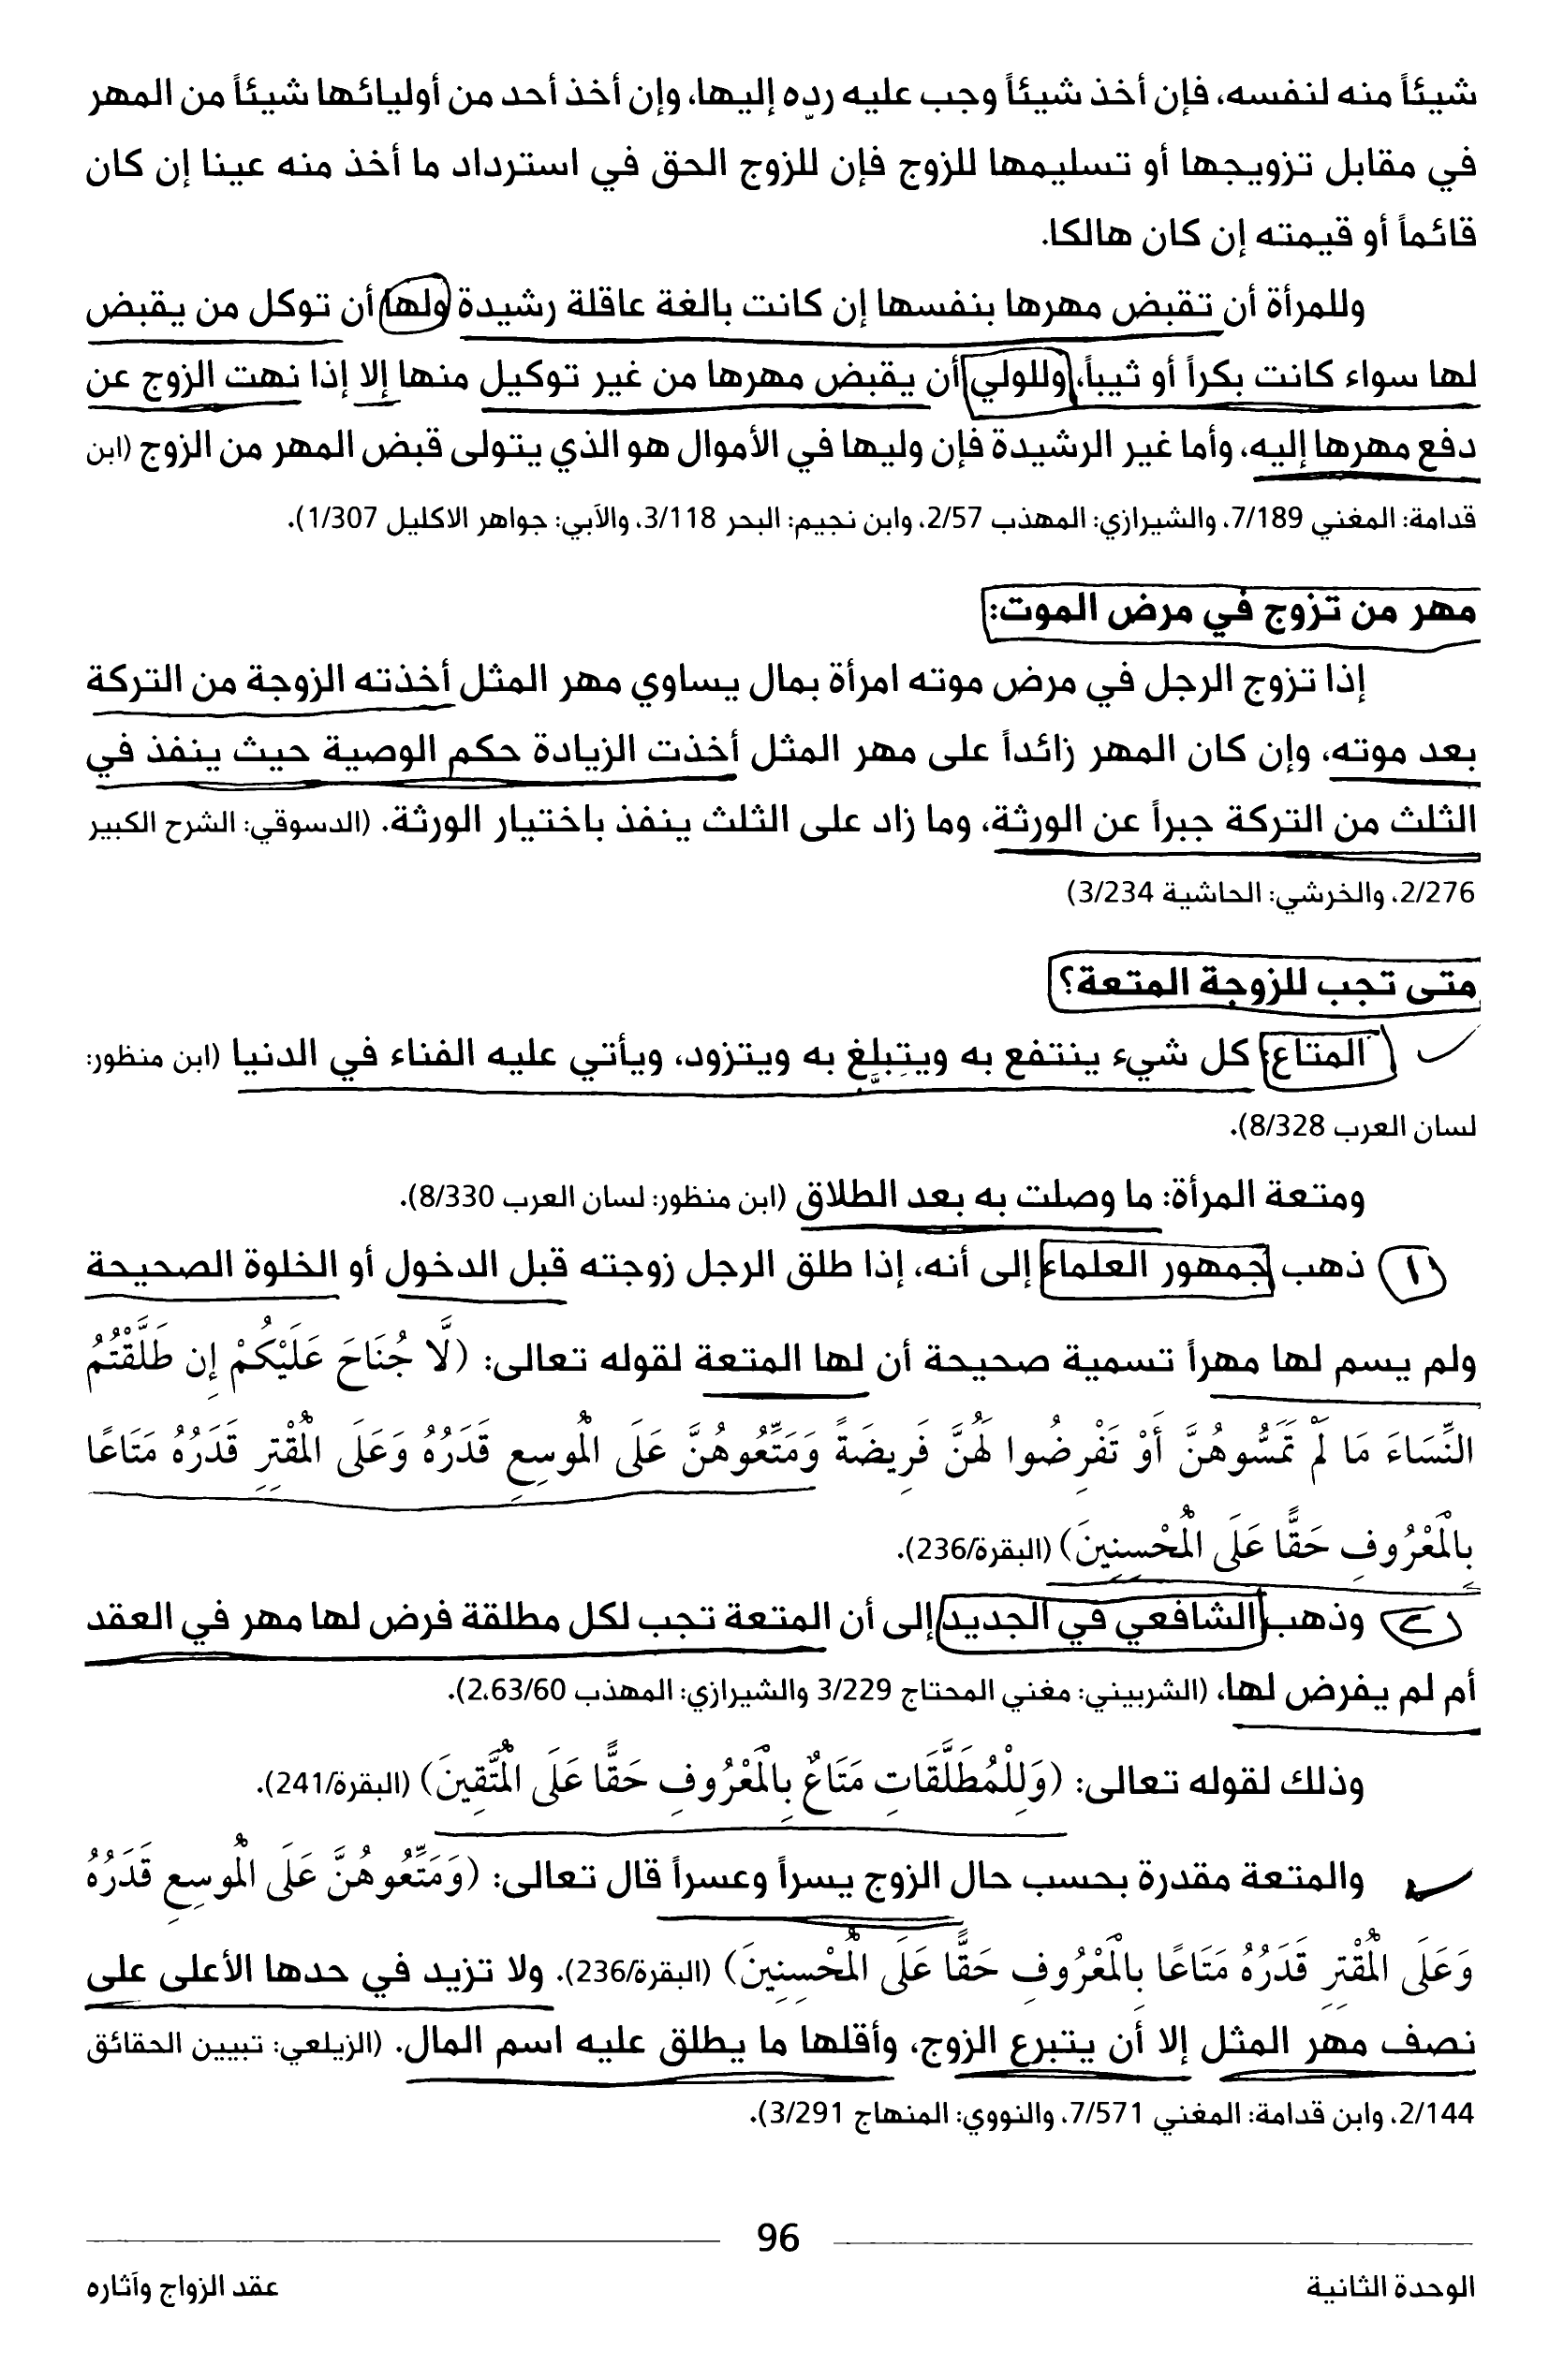 شيئاً منه لنفسه، فإن أخذ شيئاً وجب عليه ردّه إليها، وإن أخذ أحد من أوليائها شيئاً من المهر
في مقابل تزويجها أو تسليمها للزوج فإن للزوج الحق في استرداد ما أخذ منه عينا إن كان
قائماً أو قيمته إن كان هالكا.
وللمرأة أن تقبض مهرها بنفسها إن كانت بالغة عاقلة رشيدة ولها أن توكل من يقبض
لها سواء كانت بكراً أو ثيباً، وللولي أن يقبض مهرها من غير توكيل منها إلا إذا نهت الزوج عن
دفع مهرها إليه، وأما غير الرشيدة فإن وليها في الأموال هو الذي يتولى قبض المهر من الزوج (ابن
قدامة: المغني 7/189، والشيرازي: المهذب 2/57، وابن نجيم: البحر 3/118، والآبي: جواهر الاكليل 1/307).
مهر من تزوج في مرض الموت:
إذا تزوج الرجل في مرض موته امرأة بمال يساوي مهر المثل أخذته الزوجة من التركة
بعد موته، وإن كان المهر زائداً على مهر المثل أخذت الزيادة حكم الوصية حيث ينفذ في
الثلث من التركة جبراً عن الورثة، وما زاد على الثلث ينفذ باختيار الورثة. (الدسوقي: الشرح الكبير
2/276، والخرشي: الحاشية 3/234)
متى تجب للزوجة المتعة؟
المتاع: كل شيء ينتفع به ويتبلّغ به ويتزود، ويأتي عليه الفناء في الدنيا (ابن منظور:
لسان العرب 8/328).
ومتعة المرأة: ما وصلت به بعد الطلاق (ابن منظور: لسان العرب 8/330).
١ ذهب جمهور العلماء إلى أنه، إذا طلق الرجل زوجته قبل الدخول أو الخلوة الصحيحة
ولم يسم لها مهراً تسمية صحيحة أن لها المتعة لقوله تعالى: (لَّا جُنَاحَ عَلَيْكُمْ إِن طَلَّقْتُمُ
النِّسَاءَ مَا لَمْ تَمَسُّوهُنَّ أَوْ تَفْرِضُوا لَهُنَّ فَرِيضَةً وَمَتِّعُوهُنَّ عَلَى الْمُوسِعِ قَدَرُهُ وَعَلَى الْمُقْتِرِ قَدَرُهُ مَتَاعًا
بِالْمَعْرُوفِ حَقًّا عَلَى الْمُحْسِنِينَ) (البقرة/236).
٢ وذهب الشافعي في الجديد إلى أن المتعة تجب لكل مطلقة فرض لها مهر في العقد
أم لم يفرض لها، (الشربيني: مغني المحتاج 3/229 والشيرازي: المهذب 2،63/60).
وذلك لقوله تعالى: (وَلِلْمُطَلَّقَاتِ مَتَاعٌ بِالْمَعْرُوفِ حَقًّا عَلَى الْمُتَّقِينَ) (البقرة/241).
والمتعة مقدرة بحسب حال الزوج يسراً وعسراً قال تعالى: (وَمَتِّعُوهُنَّ عَلَى الْمُوسِعِ قَدَرُهُ
وَعَلَى الْمُقْتِرِ قَدَرُهُ مَتَاعًا بِالْمَعْرُوفِ حَقًّا عَلَى الْمُحْسِنِينَ) (البقرة/236). ولا تزيد في حدها الأعلى على
نصف مهر المثل إلا أن يتبرع الزوج، وأقلها ما يطلق عليه اسم المال. (الزيلعي: تبيين الحقائق
2/144، وابن قدامة: المغني 7/571، والنووي: المنهاج 3/291).
96
الوحدة الثانية
عقد الزواج وآثاره